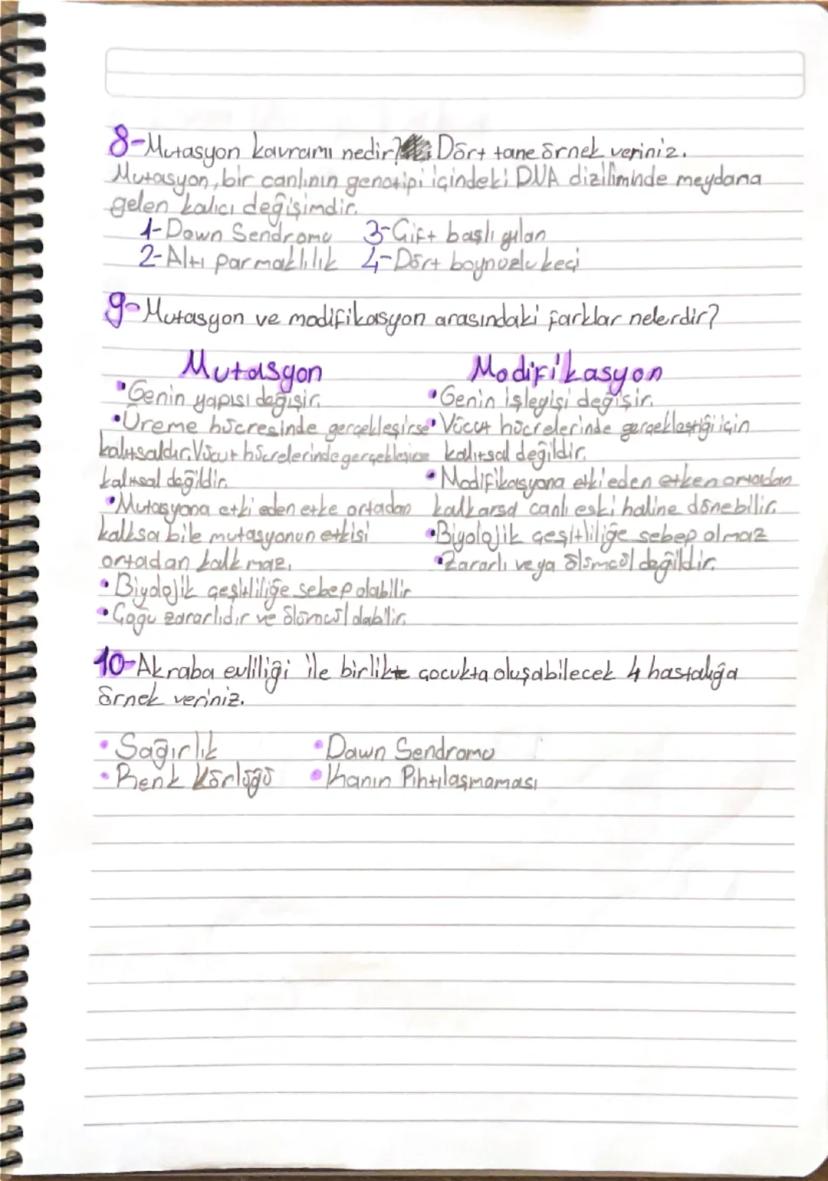 8-Mutasyon kavramı nedir? Dört tane örnek veriniz.
Mutasyon, bir canlının genotipi içindeki DNA diziliminde meydana
gelen kalıcı değişimdir.
1-Down Sendromu 3-Çift başlı yılan
2-Altı parmaklılık 4-Dört boynuzlu keçi
9-Mutasyon ve modifikasyon arasındaki farklar nelerdir?
Mutasyon Modifikasyon
•Genin yapısı değişir. •Genin işleyişi değişir.
•Üreme hücresinde gerçekleşirse •Vücut hücrelerinde gerçekleştiği için
kalıtsaldır. Vücut hücrelerinde gerçekleşirse kalıtsal değildir.
kalıtsal değildir. •Modifikasyona etki eden etken ortadan
•Mutasyona etki eden etke ortadan kalkarsa canlı eski haline dönebilir.
kalksa bile mutasyonun etkisi •Biyolojik çeşitliliğe sebep olmaz
ortadan kalkmaz. •Zararlı veya ölümcül değildir.
•Biyolojik çeşitliliğe sebep olabilir
•Çoğu zararlıdır ve ölümcül olabilir.
10-Akraba evliliği ile birlikte çocukta oluşabilecek 4 hastalığa
örnek veriniz.
•Sağırlık •Dawn Sendromu
•Renk Körlüğü •Kanın Pıhtılaşmaması